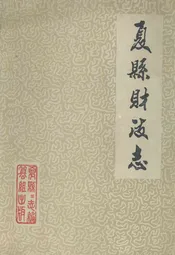 夏縣財政志